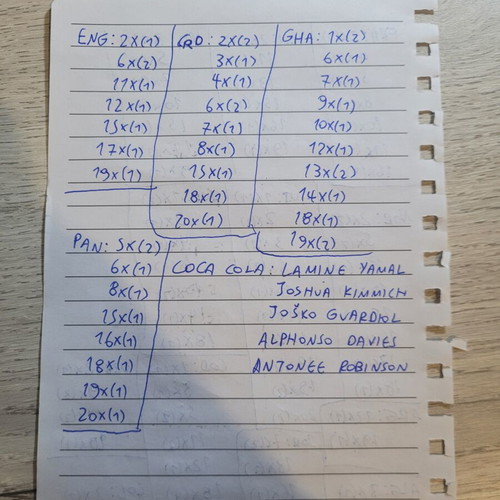 ENG: 2x(1)
6x(2)
11x(1)
12x(1)
15x(1)
17x(1)
19x(1)
CRO: 2x(2)
3x(1)
4x(1)
6x(2)
7x(1)
8x(1)
15x(1)
18x(1)
20x(1)
GHA: 1x(2)
6x(1)
7x(1)
9x(1)
10x(1)
12x(1)
13x(2)
14x(1)
18x(1)
19x(2)
PAN: 5x(2)
6x(1)
8x(1)
15x(1)
16x(1)
18x(1)
19x(1)
20x(1)
COCA COLA: LAMINE YAMAL
JOSHUA KIMMICH
JOŠKO GVARDIOL
ALPHONSO DAVIES
ANTONEE ROBINSON